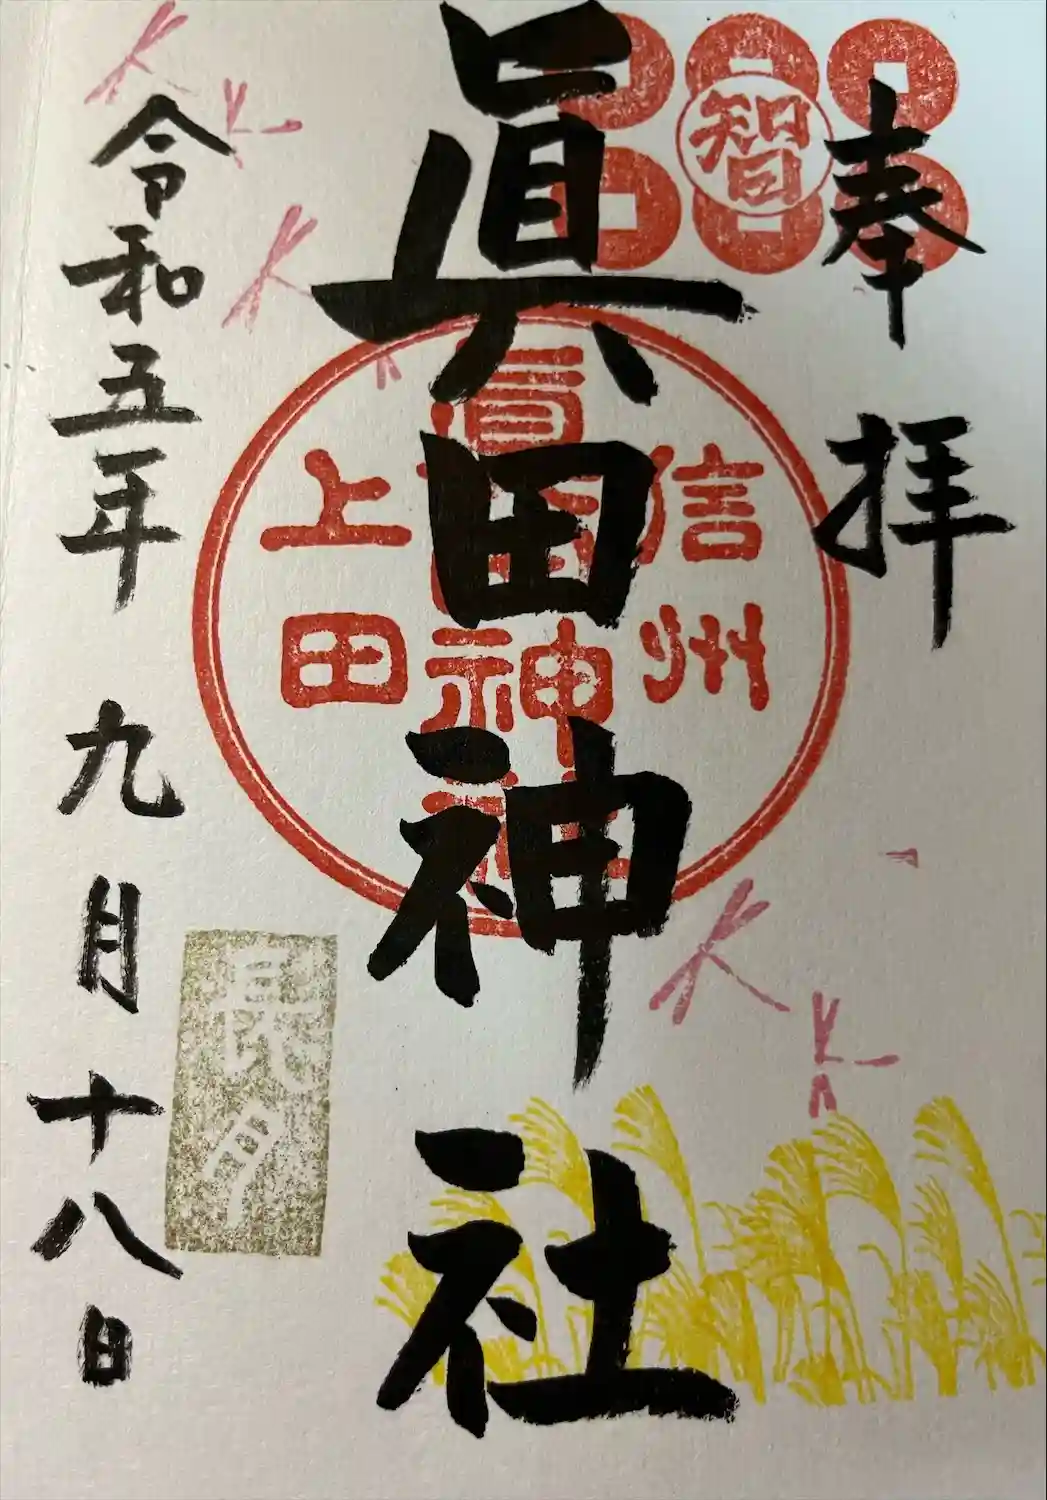 奉拝
智
眞田神社
信州
眞田神社
上田
長月
令和五年 九月十八日